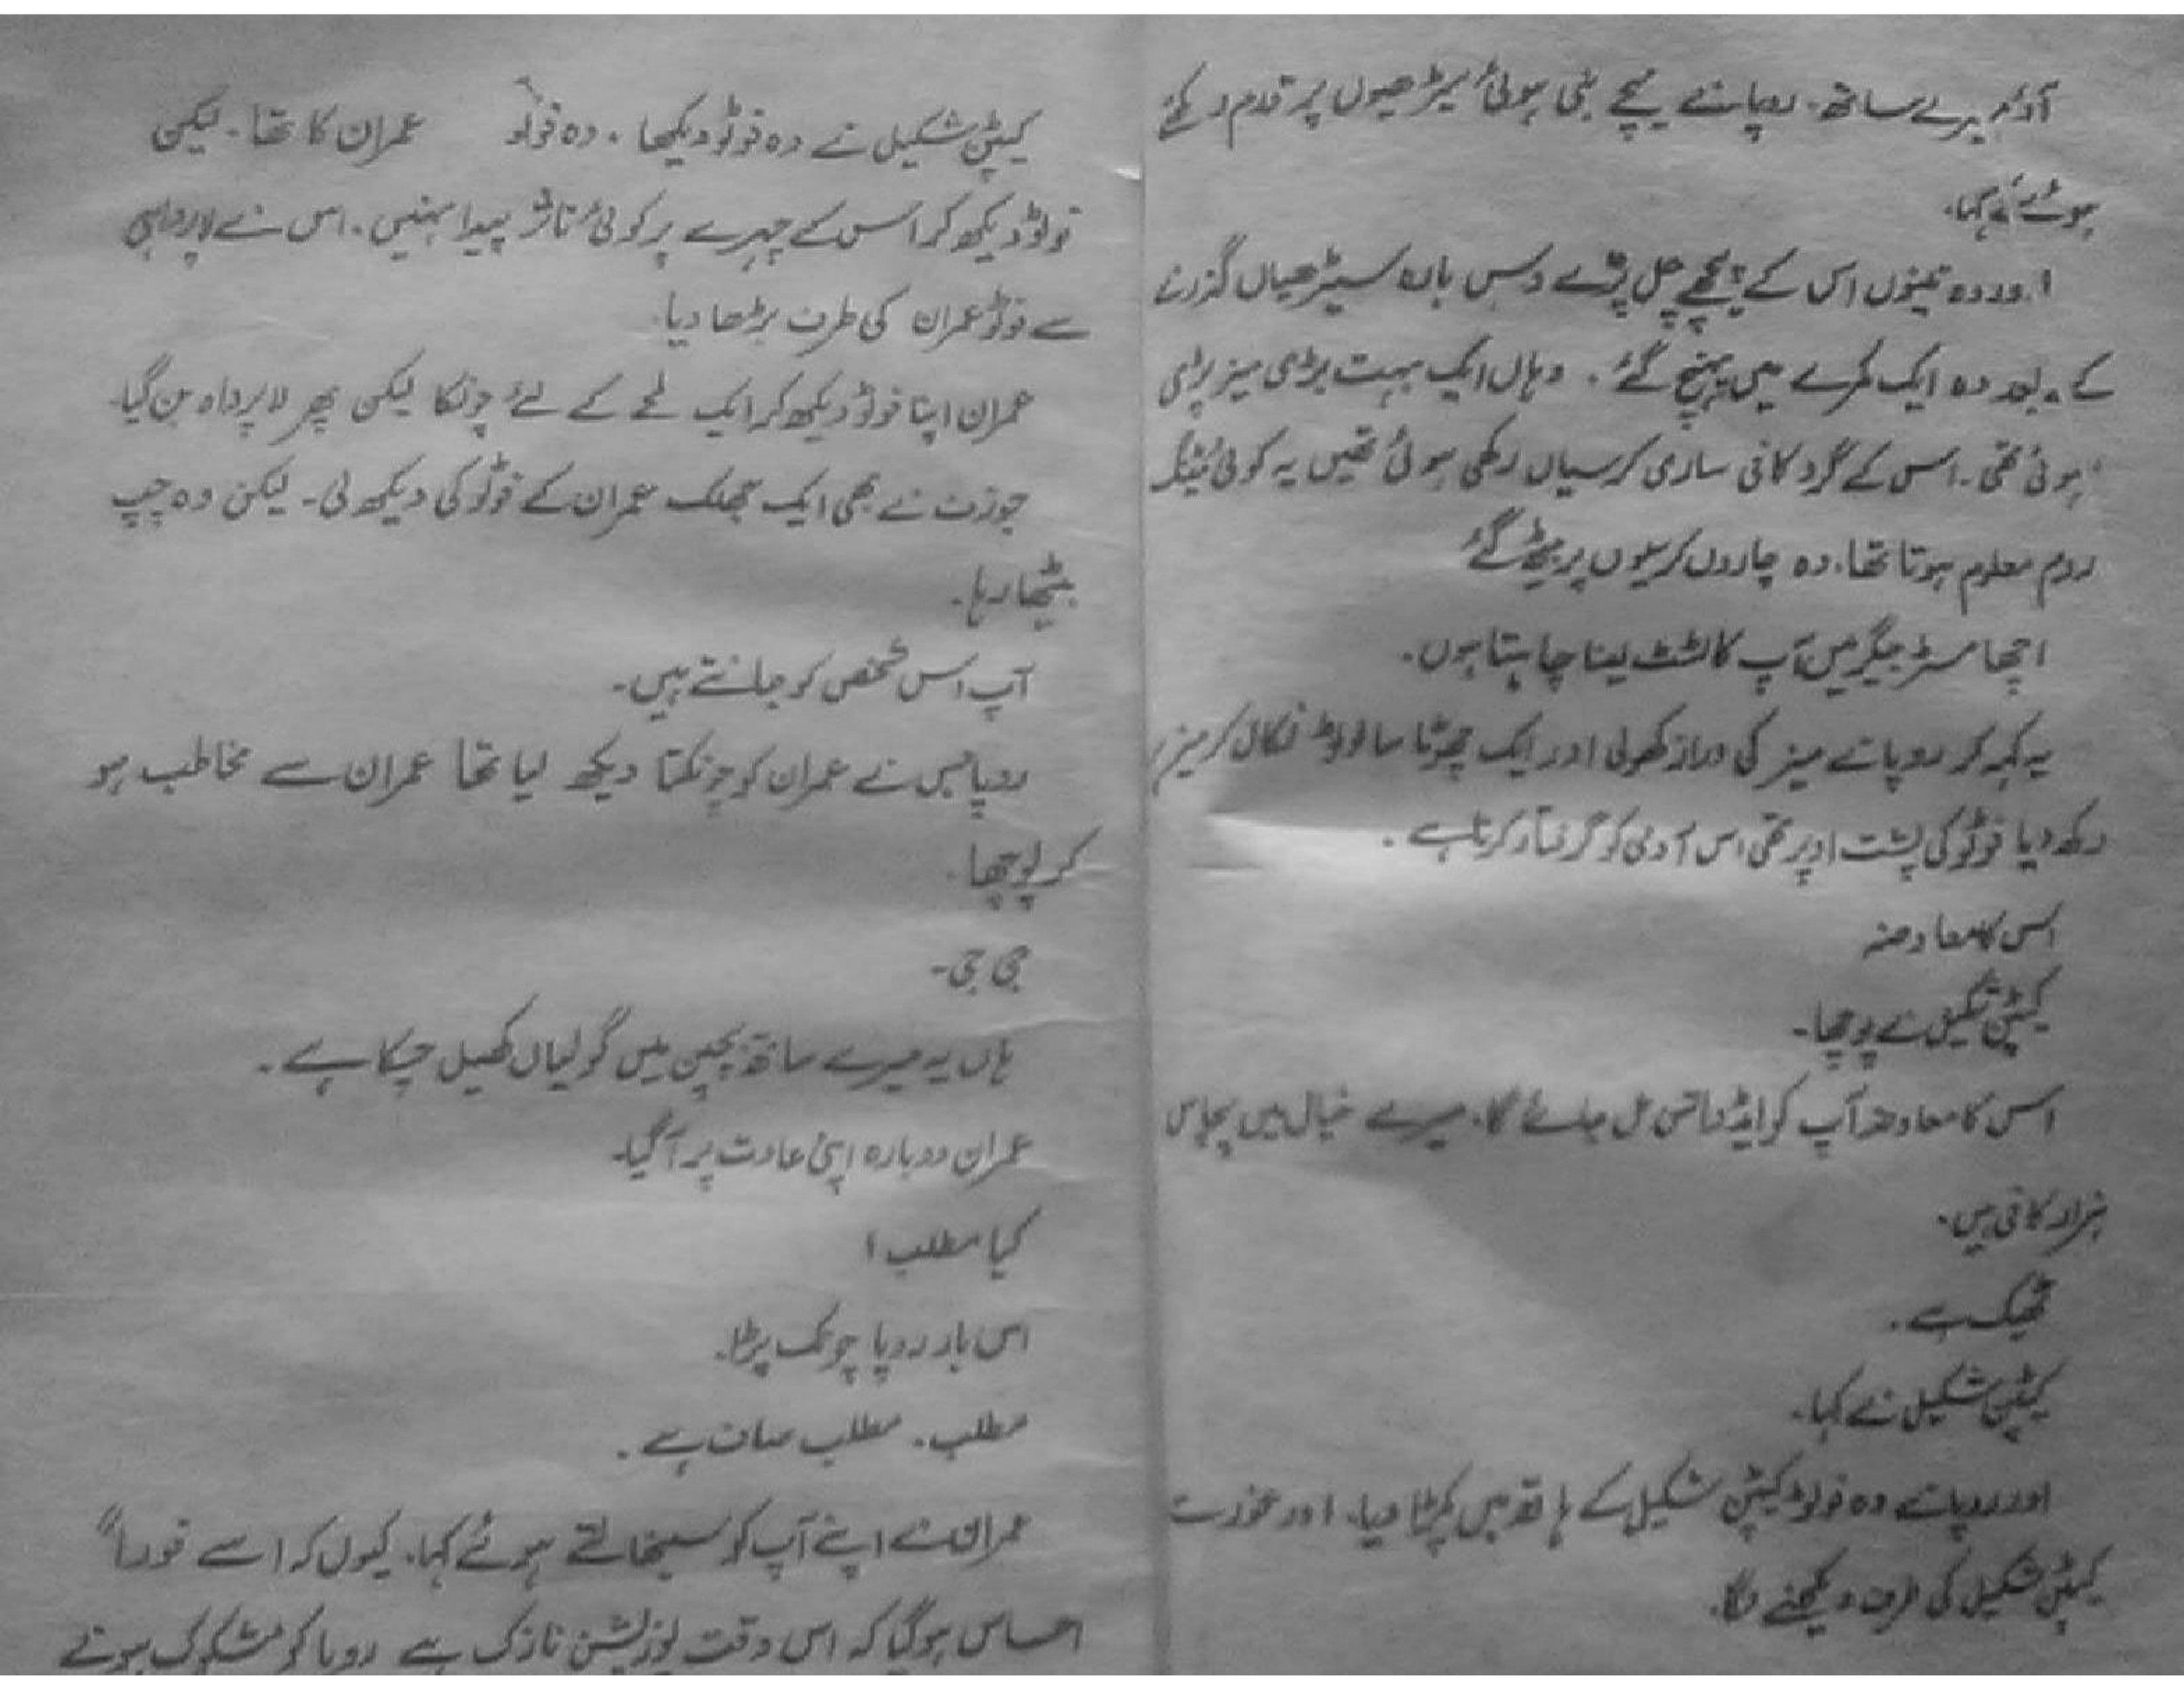 آؤ میرے ساتھ۔ روپا نے نیچے بنی ہوئی سیڑھیوں پر قدم رکھتے
ہوئے کہا۔
اور وہ تینوں اس کے پیچھے چل پڑے دس بارہ سیڑھیاں گزرنے
کے بعد وہ ایک کمرے میں پہنچ گئے۔ وہاں ایک بہت بڑی میز پڑی
ہوئی تھی۔ اس کے گرد کافی ساری کرسیاں رکھی ہوئی تھیں یہ کوئی میٹنگ
روم معلوم ہوتا تھا۔ وہ چاروں کرسیوں پر بیٹھ گئے
اچھا مسٹر جیگر میں آپ کا ٹسٹ لینا چاہتا ہوں۔
یہ کہہ کر روپا نے میز کی دراز کھولی اور ایک چھوٹا سا فوٹو نکال کر میز پر
رکھ دیا فوٹو کی پشت اوپر تھی اس آدمی کو گرفتار کرنا ہے۔
اس کا معاوضہ
کیپٹن شکیل نے پوچھا۔
اس کا معاوضہ آپ کو ایڈوانس مل جائے گا۔ میرے خیال میں پچاس
ہزار کافی ہیں۔
ٹھیک ہے۔
کیپٹن شکیل نے کہا۔
اور روپا نے وہ فوٹو کیپٹن شکیل کے ہاتھ میں پکڑا دیا۔ اور غور سے
کیپٹن شکیل کی طرف دیکھنے لگا۔
کیپٹن شکیل نے وہ فوٹو دیکھا۔ وہ فوٹو عمران کا تھا۔ لیکن
فوٹو دیکھ کر اس کے چہرے پر کوئی تاثر پیدا نہیں۔ اس نے لاپرواہی
سے فوٹو عمران کی طرف بڑھا دیا۔
عمران اپنا فوٹو دیکھ کر ایک لمحے کے لئے چونکا لیکن پھر لاپرواہ بن گیا۔
جوزف نے بھی ایک جھلک عمران کے فوٹو کی دیکھ لی۔ لیکن وہ چپ
بیٹھا رہا۔
آپ اس شخص کو جانتے ہیں۔
روپا جس نے عمران کو چونکتا دیکھ لیا تھا عمران سے مخاطب ہو
کر پوچھا۔
جی جی۔
ہاں یہ میرے ساتھ بچپن میں گولیاں کھیل چکا ہے۔
عمران دوبارہ اپنی عادت پر آ گیا۔
کیا مطلب!
اس بار روپا چونک پڑا۔
مطلب۔ مطلب صاف ہے۔
عمران نے اپنے آپ کو سنبھالتے ہوئے کہا۔ کیوں کہ اسے فوراً
احساس ہو گیا کہ اس وقت پوزیشن نازک ہے روپا کو مشکوک ہوتے